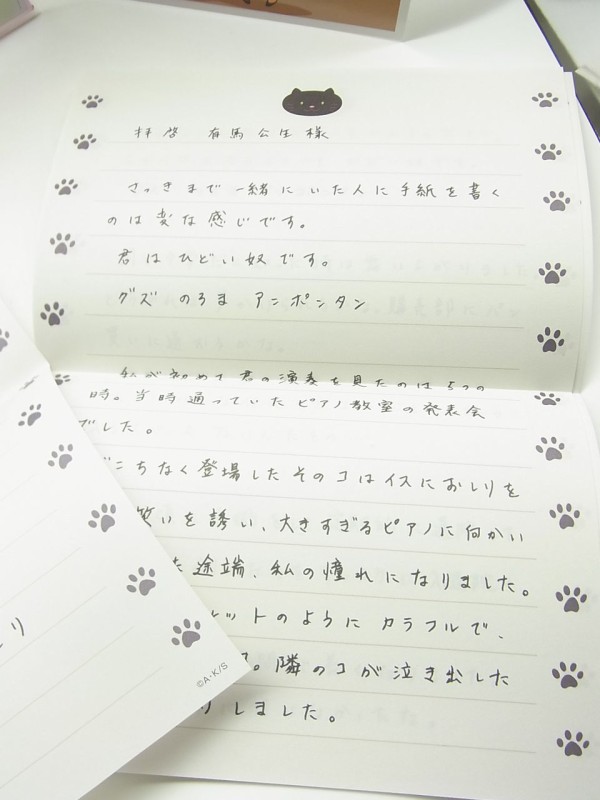 拝啓 有馬公生様
さっきまで一緒にいた人に手紙を書く
のは変な感じです。
君はひどい奴です。
グズ のろま アンポンタン
私が初めて君の演奏を見たのは5つの
時。当時通っていたピアノ教室の発表会
でした。
ぎこちなく登場したそのコはイスにおしりを
笑いを誘い、大きすぎるピアノに向かい
た途端、私の憧れになりました。
レットのようにカラフルで、
。隣のコが泣き出した
りしました。
り
©A・K/S